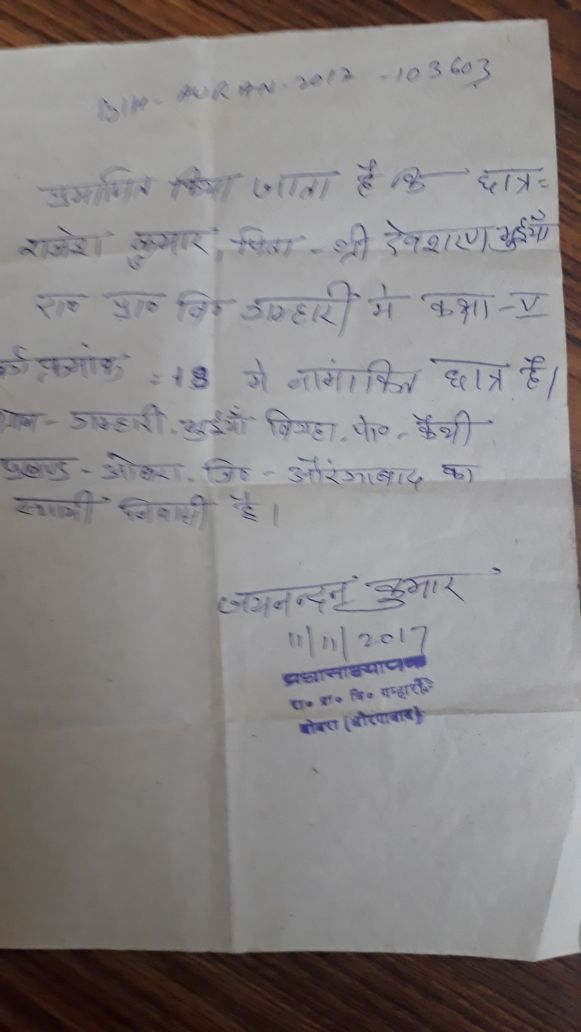 BIH - AURAN - 2017 - 103603
प्रमाणित किया जाता है कि छात्र -
राजेश कुमार, पिता - श्री देवशरण भुईयाँ
रा० प्रा० वि० जम्हारी में कक्षा - V
क्रमांक - 18 में नामांकित छात्र है।
ग्राम - जम्हारी, भुईयाँ बिगहा, पो० - कैथी
प्रखण्ड - ओबरा, जि० - औरंगाबाद का
स्थायी निवासी है।
जयनन्दन कुमार
11/11/2017
प्रधानाध्यापक
रा० प्रा० वि० जम्हारी
ओबरा (औरंगाबाद)